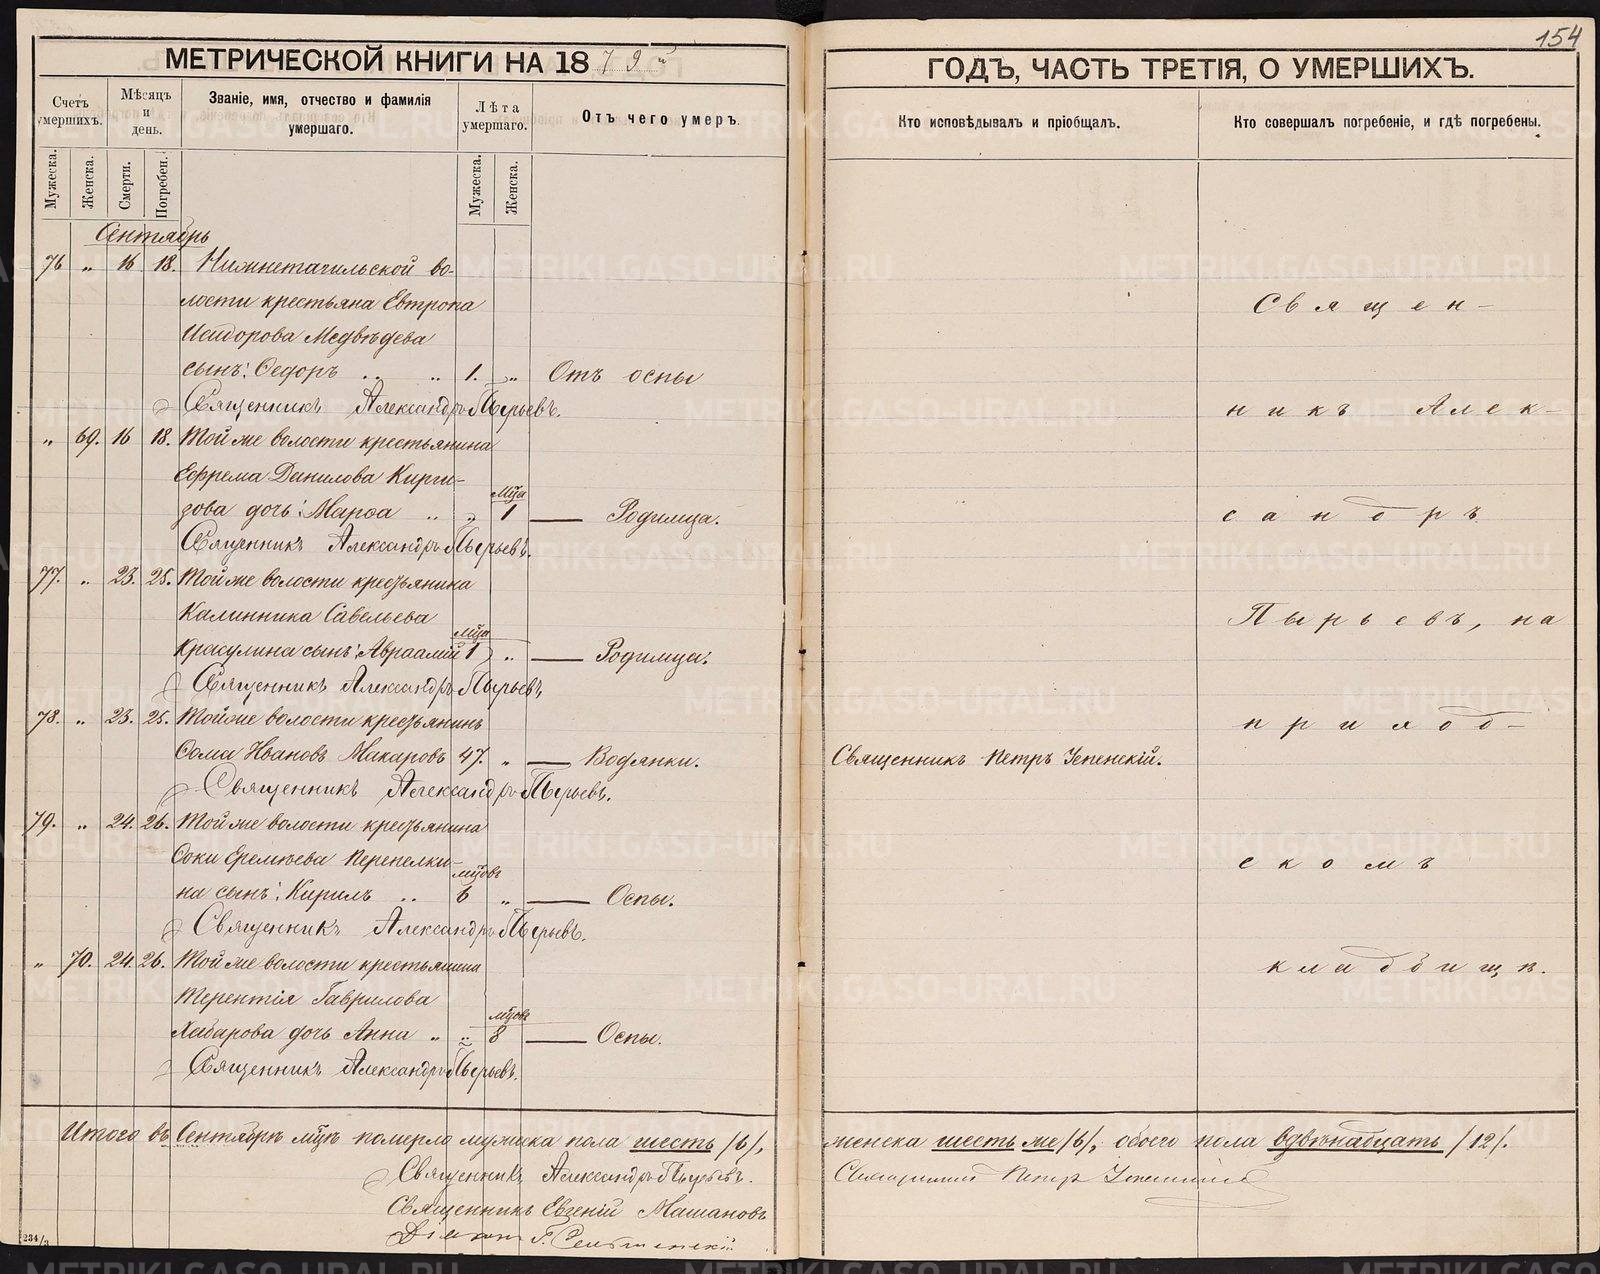 154
МЕТРИЧЕСКОЙ КНИГИ НА 1879й
ГОДЪ, ЧАСТЬ ТРЕТІЯ, О УМЕРШИХЪ.
Счетъ умершихъ.
Мѣсяцъ и день.
Званіе, имя, отчество и фамилія умершаго.
Лѣта умершаго.
Отъ чего умеръ.
Кто исповѣдывалъ и пріобщалъ.
Кто совершалъ погребеніе, и гдѣ погребены.
Мужеска.
Женска.
Смерти.
Погребен.
Мужеска.
Женска.
Сентябрь
76 „ 16 18. Нижнетагильской во-
лости крестьяна Евтропа
Исидорова Медвѣдева
сынъ: Ѳедоръ .. „ 1. „ Отъ оспы
Священникъ Александръ Пырьевъ.
„ 69. 16 18. Той же волости крестьянина
Ефрема Данилова Кирги-
зова дочь: Марѳа .. „ мца 1 — Родимца.
Священникъ Александръ Пырьевъ.
77. „ 23. 25. Той же волости крестьянина
Калинника Савельева
Красулина сынъ: Авраамій мца 1 „ — Родимца.
Священникъ Александръ Пырьевъ.
78. „ 23. 25. Той же волости крестьянинъ
Ѳома Ивановъ Макаровъ 47. „ — Водянки. Священникъ Петръ Успенскій.
Священникъ Александръ Пырьевъ.
79. „ 24. 26. Той же волости крестьянина
Фоки Еремѣева Перепелки-
на сынъ: Кирилъ .. мцовъ 6 „ — Оспы.
Священникъ Александръ Пырьевъ.
„ 70. 24. 26. Той же волости крестьянина
Терентія Гаврилова
Хабарова дочь Анна „ „ мцовъ 8 — Оспы.
Священникъ Александръ Пырьевъ.
Священ-
никъ Алек-
сандръ
Пырьевъ, на
приход-
скомъ
кладбищѣ.
Итого въ Сентябрѣ мцѣ померло мужеска пола шесть /6/, женска шесть же /6/, обоего пола двѣнадцать /12/.
Священникъ Александръ Пырьевъ.
Священникъ Петръ Успенскій
Священникъ Евгеній Машановъ
Діаконъ
234/3
METRIKI.GASO-URAL.RU